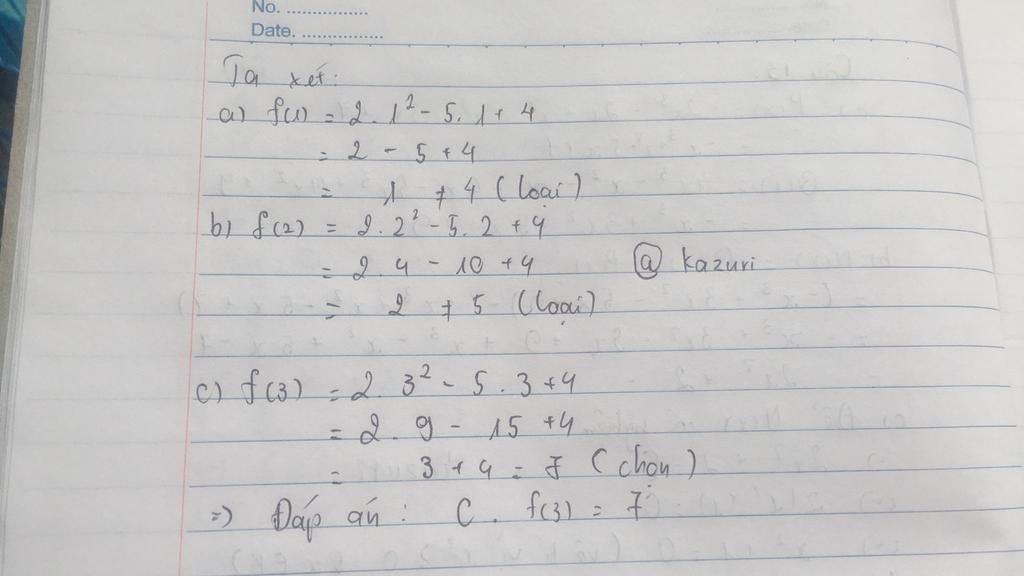 No. ................
Date. ................
Ta xét:
a) f(1) = 2.1² - 5.1 + 4
= 2 - 5 + 4
= 1 ≠ 4 (loại)
b) f(2) = 2.2² - 5.2 + 4
= 2.4 - 10 + 4 @ kazuri
= 2 ≠ 5 (loại)
c) f(3) = 2.3² - 5.3 + 4
= 2.9 - 15 + 4
= 3 + 4 = 7 (chọn)
=) Đáp án: C. f(3) = 7